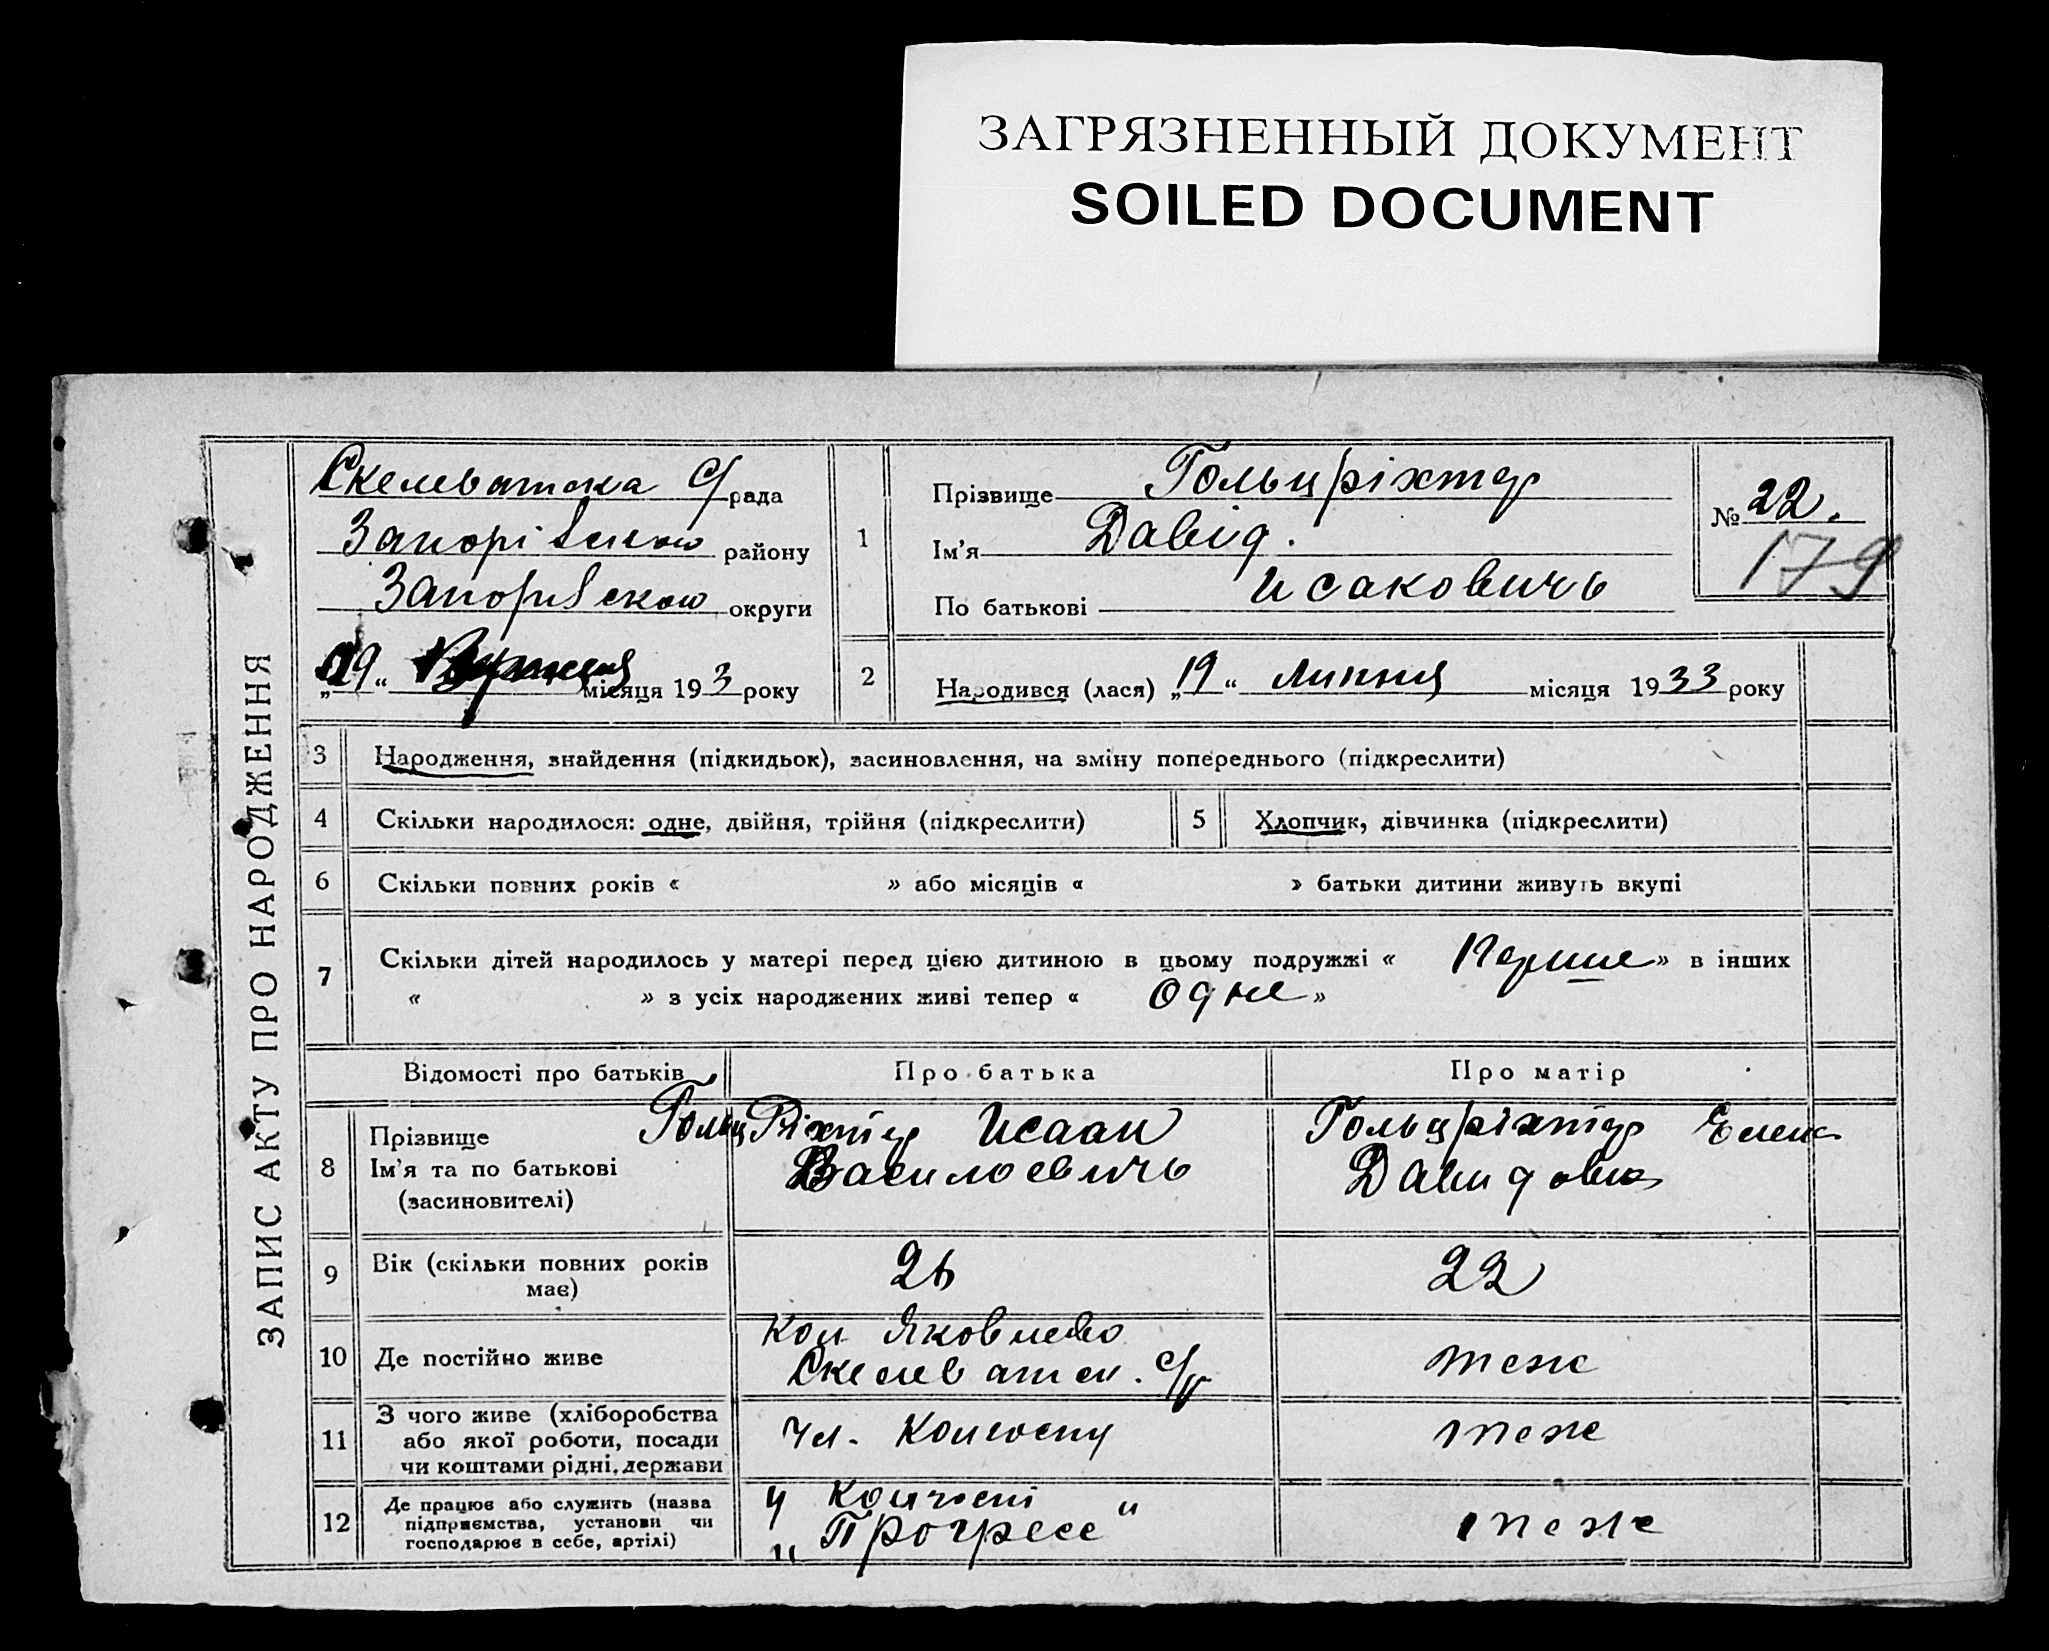 ЗАГРЯЗНЕННЫЙ ДОКУМЕНТ
SOILED DOCUMENT
ЗАПИС АКТУ ПРО НАРОДЖЕННЯ
Скелеватска С/рада
Запорівскою району
Запорівскою округи
„19“ місяця 193 3 року
1 Прізвище Гольцріхтер
Ім'я Давід.
По батькові Исаковичь
№ 22.
179
2 Народився (лася) „19“ липня місяця 1933 року
3 Народження, знайдення (підкидьок), засиновлення, на зміну попереднього (підкреслити)
4 Скільки народилося: одне, двійня, трійня (підкреслити) 5 Хлопчик, дівчинка (підкреслити)
6 Скільки повних років « » або місяців « » батьки дитини живуть вкупі
7 Скільки дітей народилось у матері перед цією дитиною в цьому подружжі « Перше » в інших
« » з усіх народжених живі тепер « одне »
Відомості про батьків Про батька Про матір
8 Прізвище
Ім'я та по батькові
(засиновителі)
ГольцРіхтер Исаак
Василоевичь
Гольцріхтер Елена
Давидовна
9 Вік (скільки повних років
має)
26
22
10 Де постійно живе
Кол Яковлево
Скелеватск. С/р
теж
11 З чого живе (хліборобства
або якої роботи, посади
чи коштами рідні, держави
чл. Колгоспу
теж
12 Де працює або служить (назва
підприємства, установи чи
господарює в себе, артілі)
у Колгоспі
„Прогресс"
теж